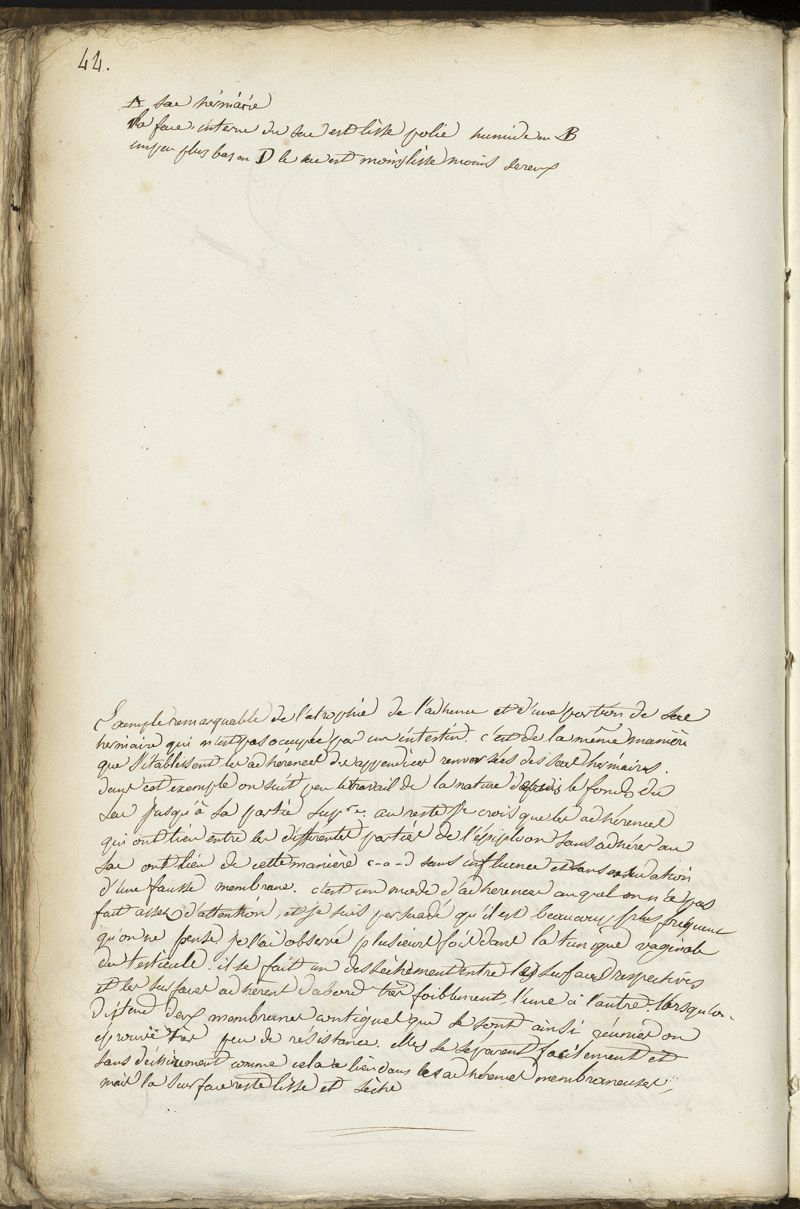 44.
A sac herniaire
la face interne du sac est lisse polie humide en B
un peu plus bas en D le sac est moins lisse moins sereux
Exemple remarquable de l'atrophie de l'adherence et d'une portion de sac
herniaire qui n'est pas occupée par un intestin. c'est de la même manière
que s'établissent les adhérences des appendices renversées des sacs herniaires.
dans cet exemple on suit peu le travail de la nature depuis le fonds du
sac jusqu'à sa partie supre. au reste je crois que les adhérences
qui ont lieu entre les differentes parties de l'épiploon sans adhérer au
sac ont lieu de cette manière c-a-d sans influence et sans exsudation
d'une fausse membrane. c'est un mode d'adherences auquel on n'a pas
fait assez d'attention, et je suis persuadé qu'il est beaucoup plus fréquent
qu'on ne pense je l'ai observé plusieurs fois dans la tunique vaginale
du testicule. il se fait un dessèchement entre les surfaces respectives
et les surfaces adhèrent d'abord très foiblement l'une à l'autre. lorsqu'on
distend deux membranes contiguës qui se sont ainsi reunies on
eprouve très peu de résistance. elles se séparent facilement et
sans dechirement comme cela a lieu dans les adhérences membraneuses,
mais la surface reste lisse et sèche